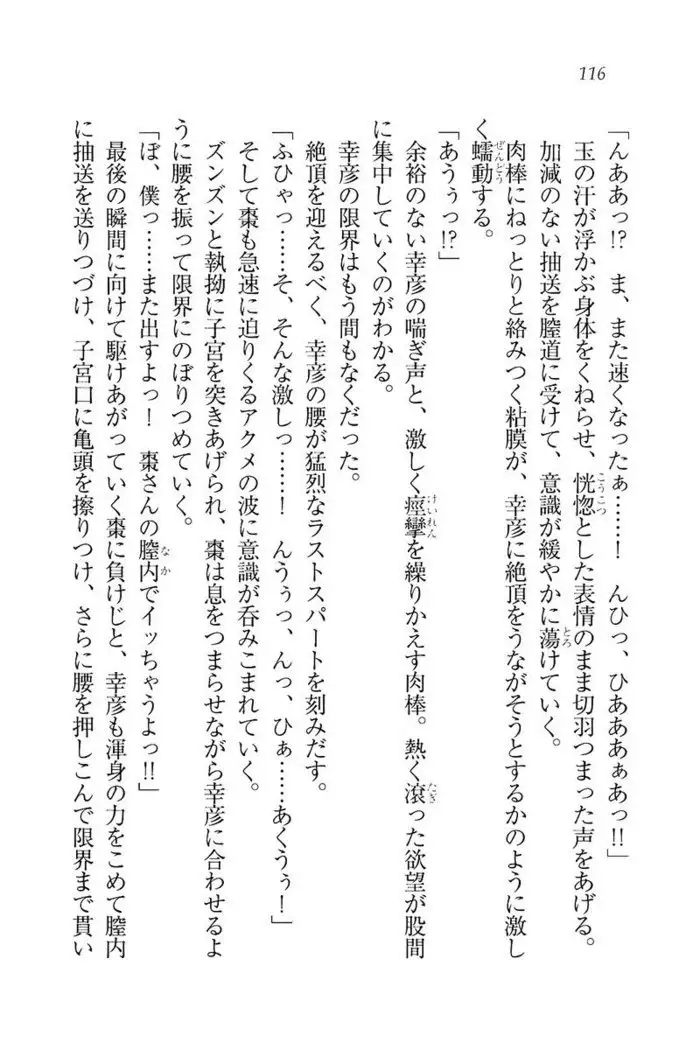 116
「んああっ!? ま、また速くなったぁ……! んひっ、ひあああぁあっ!!」
玉の汗が浮かぶ身体をくねらせ、恍惚とした表情のまま切羽つまった声をあげる。
加減のない抽送を膣道に受けて、意識が緩やかに蕩けていく。
肉棒にねっとりと絡みつく粘膜が、幸彦に絶頂をうながそうとするかのように激し
く蠕動する。
「あうぅっ!?」
余裕のない幸彦の喘ぎ声と、激しく痙攣を繰りかえす肉棒。熱く滾った欲望が股間
に集中していくのがわかる。
幸彦の限界はもう間もなくだった。
絶頂を迎えるべく、幸彦の腰が猛烈なラストスパートを刻みだす。
「ふひゃっ……そ、そんな激しっ……! んうぅっ、んっ、ひぁ……あくうぅ!」
そして棗も急速に迫りくるアクメの波に意識が呑みこまれていく。
ズンズンと執拗に子宮を突きあげられ、棗は息をつまらせながら幸彦に合わせるよ
うに腰を振って限界にのぼりつめていく。
「ぼ、僕っ……また出すよっ! 棗さんの膣内でイッちゃうよっ!!」
最後の瞬間に向けて駆けあがっていく棗に負けじと、幸彦も渾身の力をこめて膣内
に抽送を送りつづけ、子宮口に亀頭を擦りつけ、さらに腰を押しこんで限界まで貫い